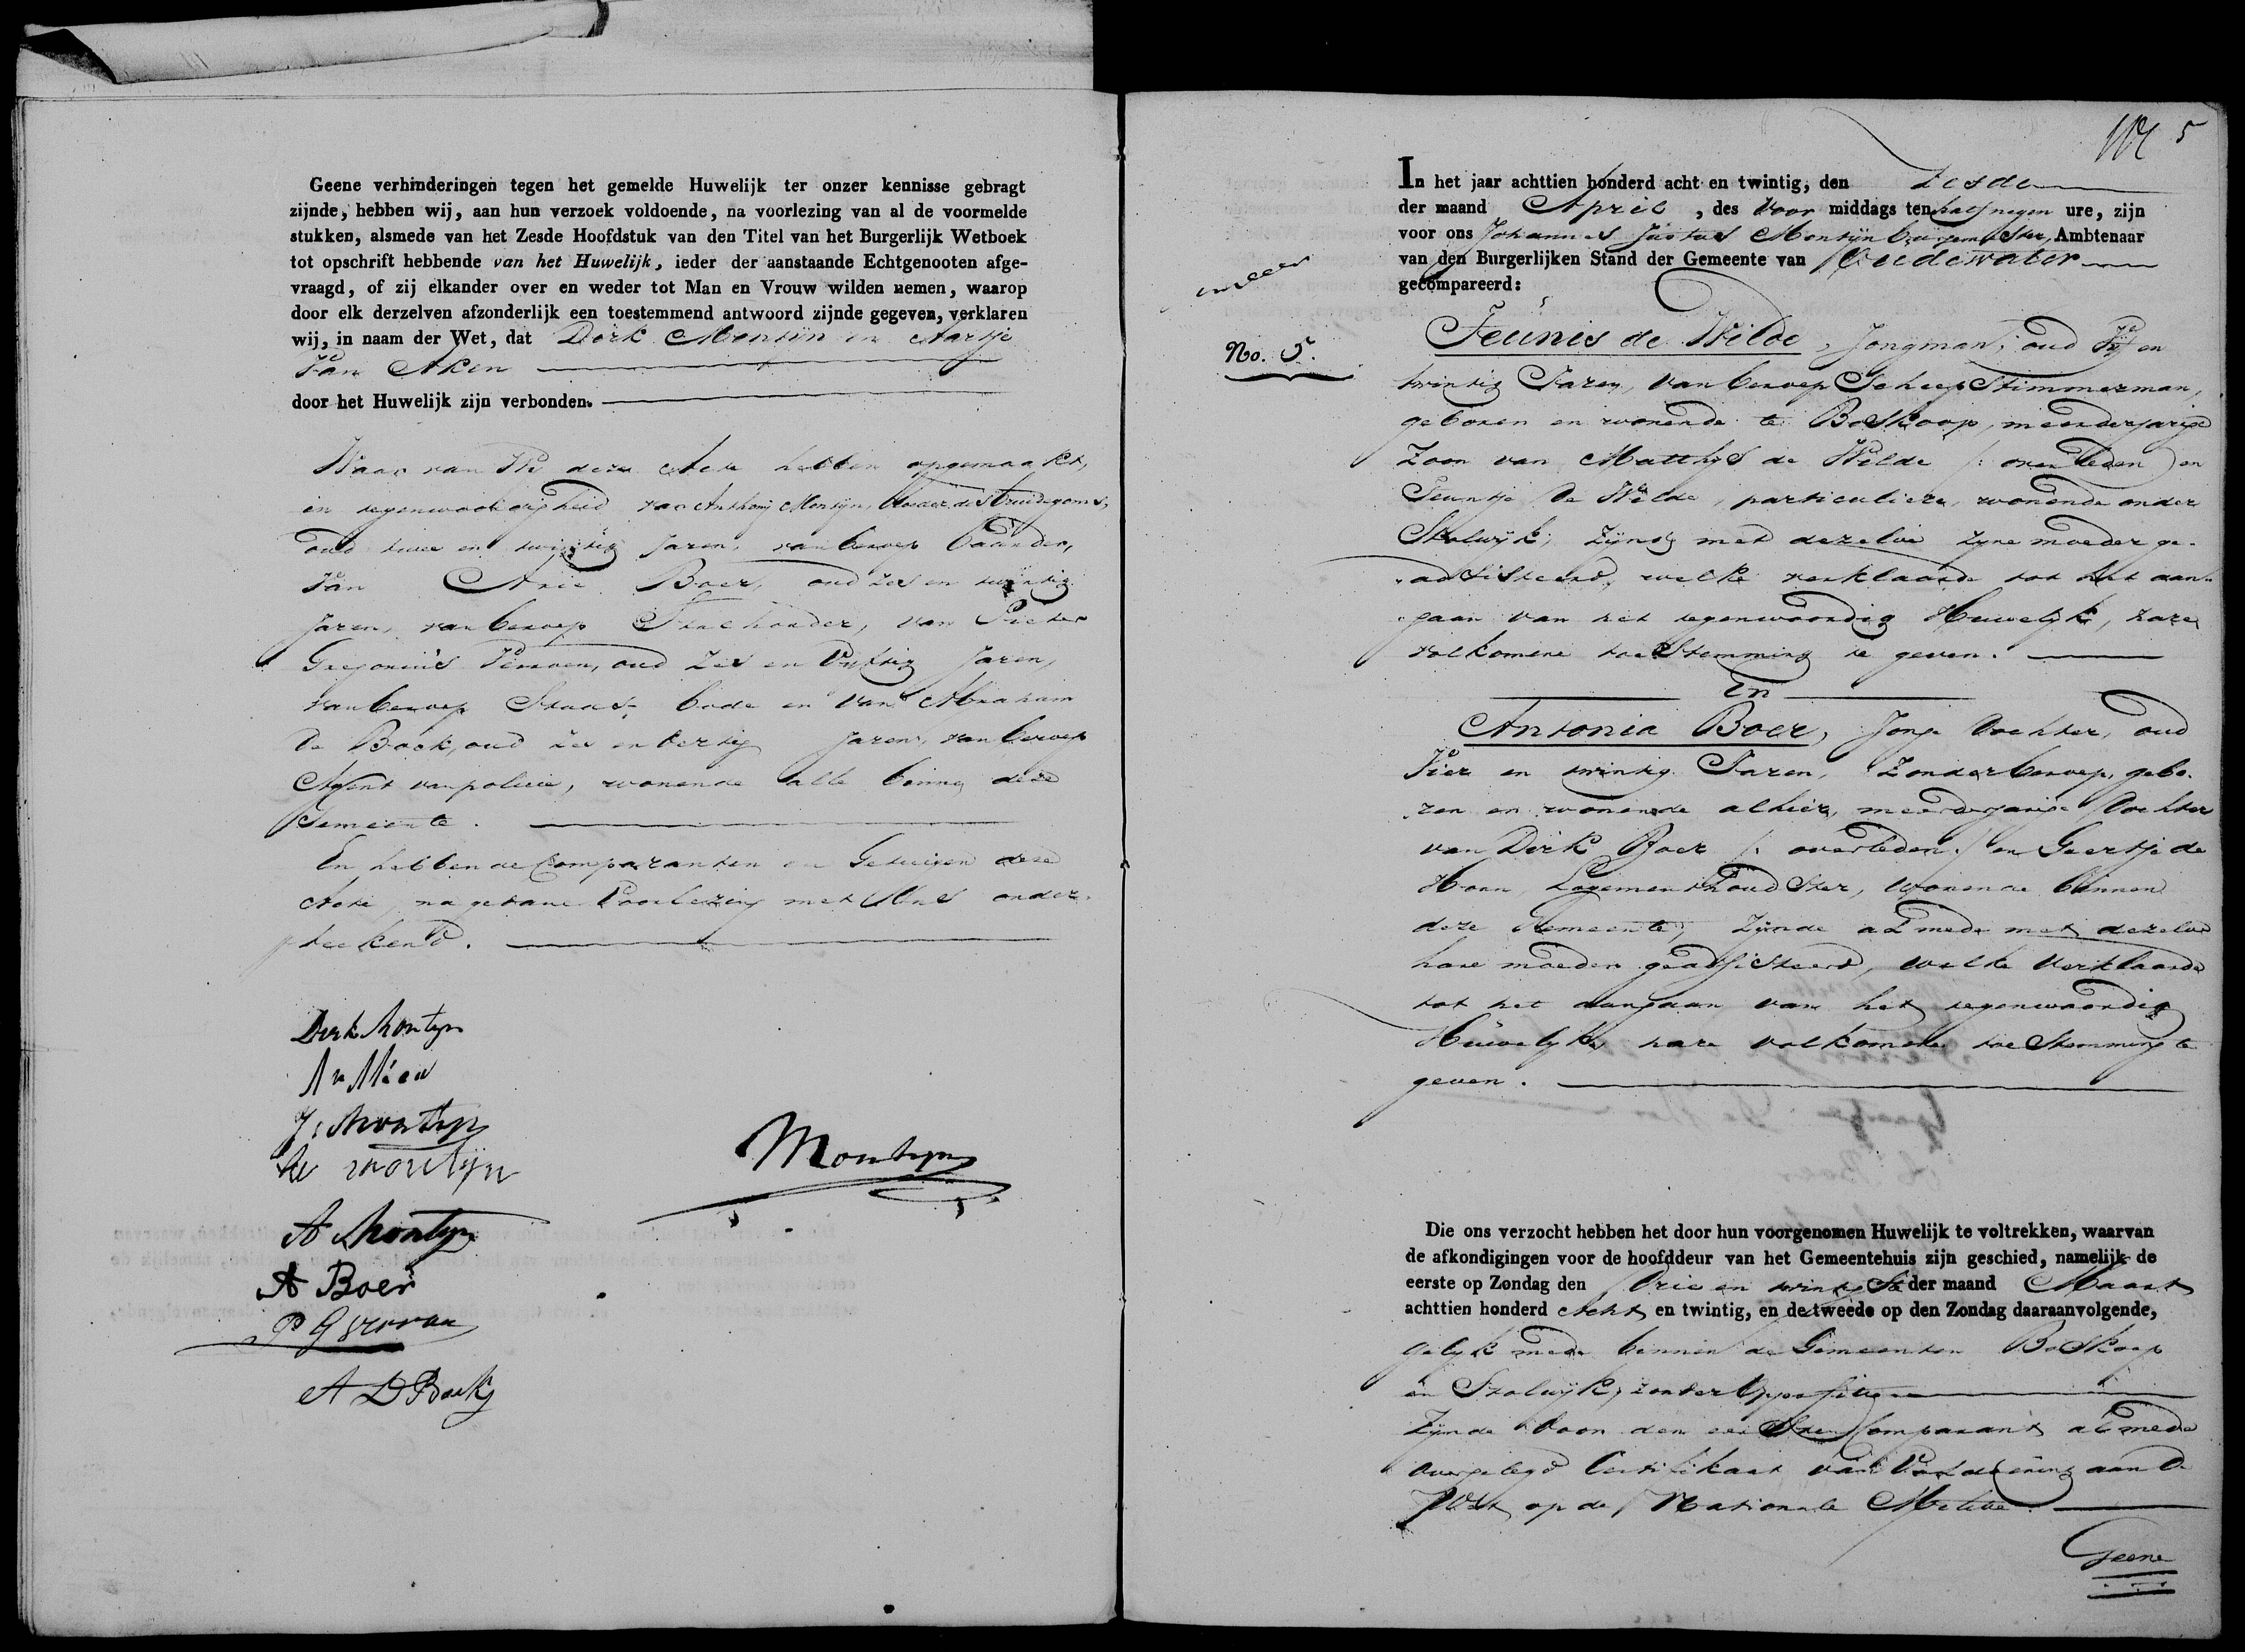 Geene verhinderingen tegen het gemelde Huwelijk ter onzer kennisse gebragt
zijnde, hebben wij, aan hun verzoek voldoende, na voorlezing van al de voormelde
stukken, alsmede van het Zesde Hoofdstuk van den Titel van het Burgerlijk Wetboek
tot opschrift hebbende van het Huwelijk, ieder der aanstaande Echtgenooten afge-
vraagd, of zij elkander over en weder tot Man en Vrouw wilden nemen, waarop
door elk derzelven afzonderlijk een toestemmend antwoord zijnde gegeven, verklaren
wij, in naam der Wet, dat Dirk Montijn en Aartje
Van Aken
door het Huwelijk zijn verbonden.
Waar van Wij deze Acte hebben opgemaakt,
in tegenwoordigheid van Anthonij Montijn, broeder des bruidegoms,
oud twee en twintig Jaren, van beroep baander,
Van Arie Boer, oud zes en twintig
Jaren, van beroep Stalhouder, van Pieter
Gregorius Verroen, oud Zes en Vyftig Jaren,
van beroep Stads bode en Van Abraham
De Bock, oud zes en dertig Jaren, van beroep
Agent van policie, wonende alle binne deze
Gemeente.
En hebben de Comparanten en Getuigen deze
Acte, na gedane Voorlezing met Ons onder-
teekend.
Dirk Montyn
A v Aken
J: Montyn
Montijn
A Montyn
A Boer
P G Verroen
A D Bock
Montyn
5
In het jaar achttien honderd acht en twintig, den Zesde
der maand April, des Voor middags ten half negen ure, zijn
voor ons Johannes Justus Montijn burgemeester, Ambtenaar
van den Burgerlijken Stand der Gemeente van Oudewater
gecompareerd:
No. 5.
Teunis de Wilde, Jongman, oud Vyf en
twintig Jaren, Van beroep Scheepstimmerman,
geboren en wonende te Boskoop, meerderjarige
Zoon van Matthys de Wilde /: overleden :/ en
Teuntje De Wilde, particuliere, wonende onder
Stolwyk; Zijnde met dezelve zyne moeder ge-
adsisteerd, welke verklaarde tot het aan-
gaan van het tegenwoordig Huwelyk, hare
volkomene toestemming te geven.
En
Antonia Boer, Jonge Dochter, oud
Vier en twintig Jaren, Zonder beroep, gebo-
ren en wonende alhier, meerderjarige Dochter
van Dirk Boer /: overleden :/ en Geertje de
Hoon, Logementhoudster, Wonende binnen
deze Gemeente, Zijnde al mede met dezelve
hare moeder geadsisteerd, welke Verklaarde
tot het aangaan van het tegenwoordig
Huwelyk, hare volkomene toestemming te
geven.
Die ons verzocht hebben het door hun voorgenomen Huwelijk te voltrekken, waarvan
de afkondigingen voor de hoofddeur van het Gemeentehuis zijn geschied, namelijk de
eerste op Zondag den Drie en twintigste der maand Maart
achttien honderd Acht en twintig, en de tweede op den Zondag daaraanvolgende,
gelyk mede binnen de Gemeenten Boskoop
en Stolwyk, zonder Oppositie
Zijnde door den eersten Comparant al mede
overgelegd Certifikaat van Voldoening aan De
Wet op de Nationale Militie.
Geene